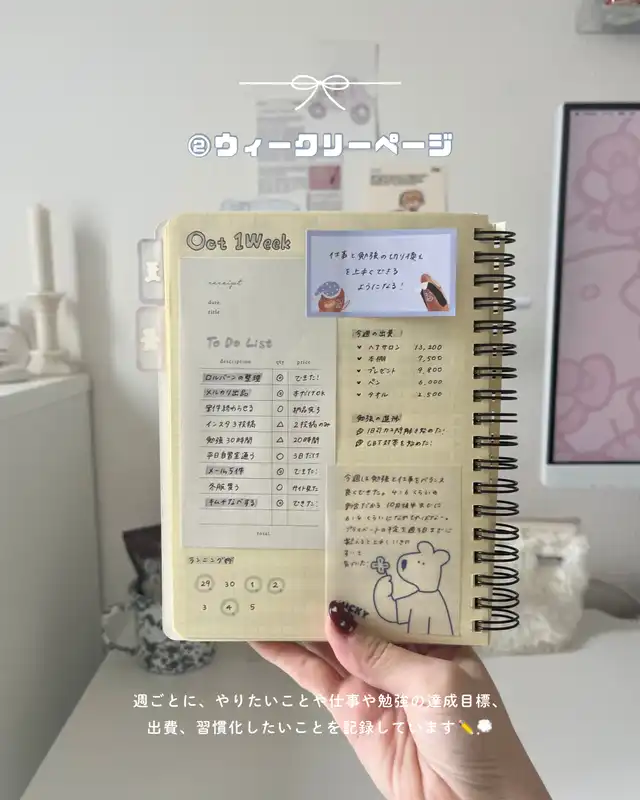 ②ウィークリーページ
Oct 1Week
仕事と勉強の切り換え
を上手くできる
ようになる!
receipt
date
title
To Do List
description qty price
ロルバーンの整理 ◎ できた!
メルカリ出品 ◎
案件終わらせる ○ 納品完了
インスタ3投稿 △ 2投稿のみ
勉強30時間 △ 20時間
平日自習室通う ○ 3日だけ
メール5件 ◎ できた!
冬服買う ○ サイト見た
キムチなべする ◎ できた!
total
ランニング
29 30 1 2
3 4 5
今週の出費!
♥ ヘアサロン 13,200
♥ 本棚 7,500
♥ プレゼント 9,800
♥ ペン 6,000
♥ タオル 4,500
勉強の進捗
を始めた!
CBT対策を始めた!
今週は勉強と仕事をバランス
良くできた。
LUCKY
週ごとに、やりたいことや仕事や勉強の達成目標、
出費、習慣化したいことを記録しています✏️💭